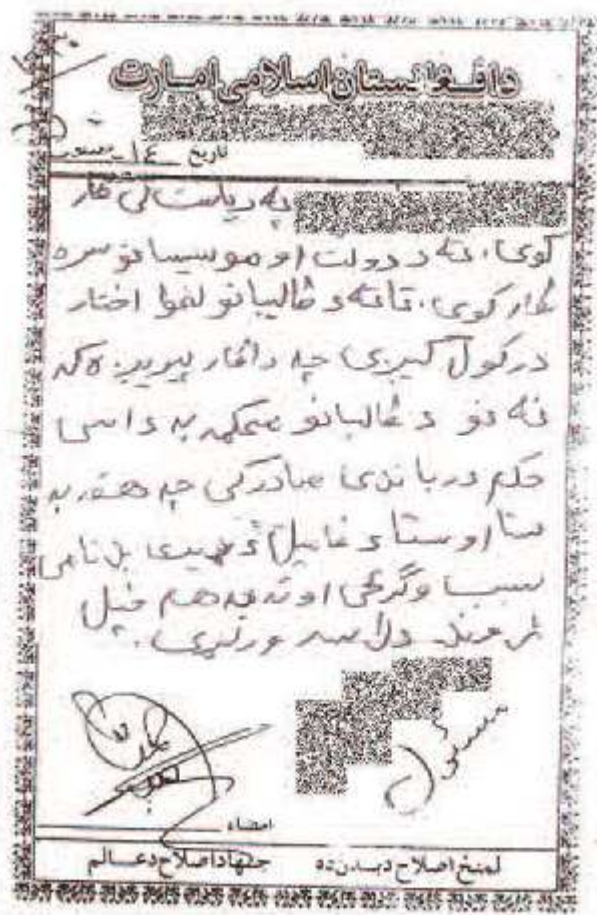 دافغانستان اسلامی امارت
تاریخ ١٤
په ریاست کی کار
کوی، ته د دولت او موسیسا نو سره
کار کوی، تاته د طالبانو لخوا اختار
درکول کیږی چه دا کار پریږده که
نه نو د طالبانو محکمه به داسی
حکم در باندی صادر کی چه هغه به
ستا او ستا د فامیل د بدنامی
سبب وگرځی او ته به هم خپل
امضاء
لمنځ اصلاح دبدن ده
جهاد اصلاح د عالم